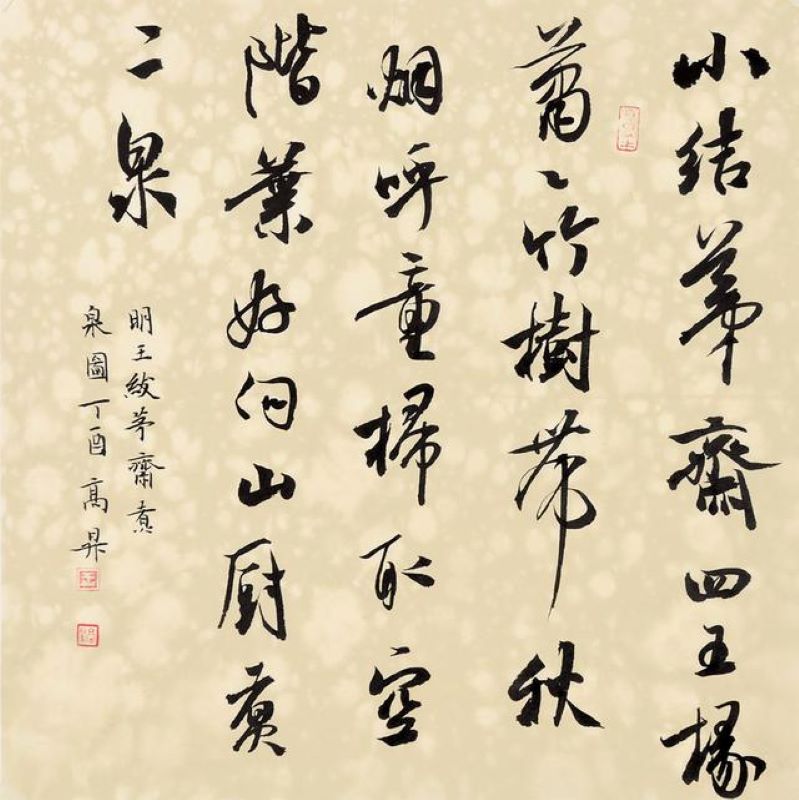 小結茅齋四五椽
蕭々竹樹帶秋
烟呼童掃取空
階葉好向山廚煮
二泉
明王紱茅齋煮
泉圖丁酉高昇